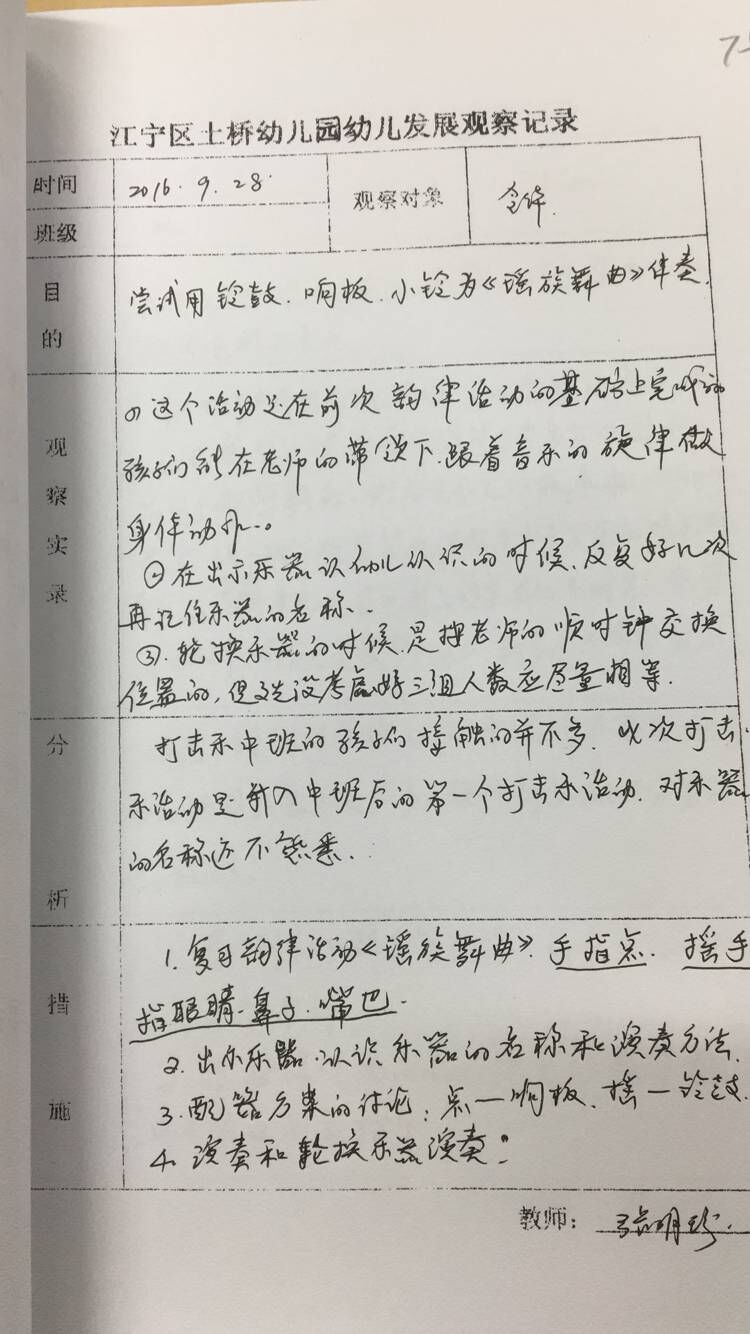 江宁区土桥幼儿园幼儿发展观察记录
时间 2016.9.28. 观察对象 全体.
班级
目的 尝试用铃鼓、响板、小铃为《瑶族舞曲》伴奏.
观察实录 ①这个活动是在前次韵律活动的基础上完成的
孩子们能在老师的带领下,跟着音乐的旋律做
身体动作。
②在出示乐器认幼儿认识的时候,反复好几次
再记住乐器的名称.
③.轮换乐器的时候,是按老师的顺时钟交换
位置的,但没考虑好三组人数应尽量相等.
分析 打击乐中班的孩子们接触的并不多,此次打击
乐活动是升入中班后的第一个打击乐活动,对乐器
的名称还不熟悉.
措施 1.复习韵律活动《瑶族舞曲》.手指点.摇手
指眼睛.鼻子.嘴巴.
2.出示乐器.认识乐器的名称和演奏方法.
3.配器方案的讨论:点—响板、摇—铃鼓.
4.演奏和轮换乐器演奏:
教师:张明珍.